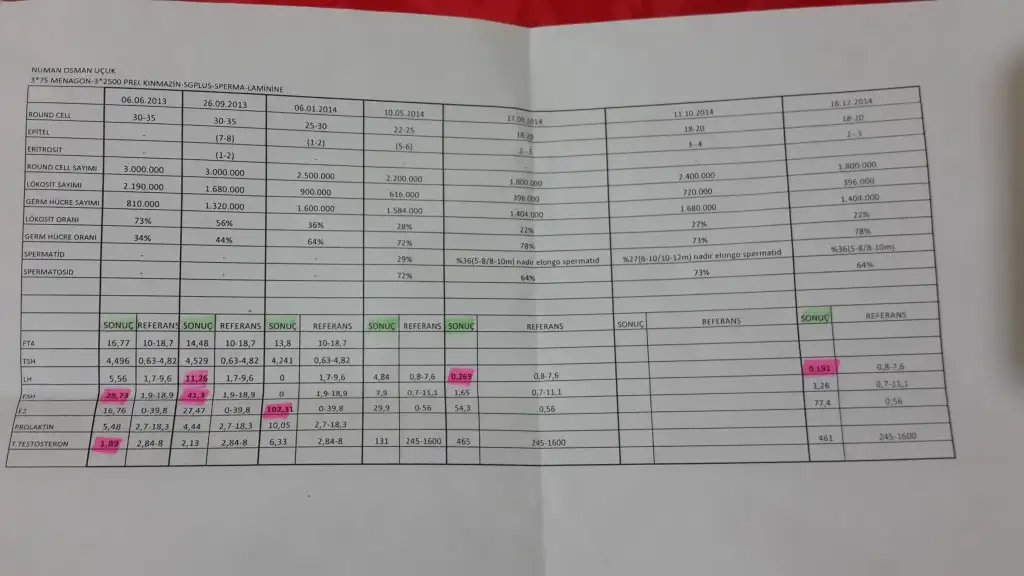 NUMAN OSMAN UÇUK
3*75 MENAGON-3*2500 PREG KINMAZIN-SGPLUS-SPERMA-LAMININE
06.06.2013 26.09.2013 06.01.2014 10.05.2014 17.09.2014 11.10.2014 16.12.2014
ROUND CELL 30-35 30-35 25-30 22-25 18-20 18-20 18-20
EPİTEL - (7-8) (1-2) (5-6) 2--3 3--4 2--3
ERİTROSİT - (1-2) - - -
ROUND CELL SAYIMI 3.000.000 3.000.000 2.500.000 2.200.000 1.800.000 2.400.000 1.800.000
LÖKOSİT SAYIMI 2.190.000 1.680.000 900.000 616.000 396.000 720.000 396.000
GERM HÜCRE SAYIMI 810.000 1.320.000 1.600.000 1.584.000 1.404.000 1.680.000 1.404.000
LÖKOSİT ORANI 73% 56% 36% 28% 22% 27% 22%
GERM HÜCRE ORANI 34% 44% 64% 72% 78% 73% 78%
SPERMATİD - - - 29% %36(5-8/8-10m) nadir elongo spermatid %27(8-10/10-12m) nadir elongo spermatid %36(5-8/8-10m)
SPERMATOSİD - - - 72% 64% 73% 64%
SONUÇ REFERANS SONUÇ REFERANS SONUÇ REFERANS SONUÇ REFERANS SONUÇ REFERANS SONUÇ REFERANS SONUÇ REFERANS
FTA 16,77 10-18,7 14,48 10-18,7 13,8 10-18,7
TSH 4,496 0,63-4,82 4,529 0,63-4,82 4,241 0,63-4,82
LH 5,56 1,7-9,6 11,26 1,7-9,6 0 1,7-9,6 4,84 0,8-7,6 0.269 0,8-7,6 0.191 0,8-7,6
FSH 28,73 1,9-18,9 41,3 1,9-18,9 0 1,9-18,9 7,9 0,7-11,1 1,65 0,7-11,1 1,26 0,7-11,1
E2 16,76 0-39,8 27,47 0-39,8 102,31 0-39,8 29,9 0-56 54,3 0,56 77,4 0,56
PROLAKTİN 5,48 2,7-18,3 4,44 2,7-18,3 10,05 2,7-18,3
T.TESTOSTERON 1,89 2,84-8 2,13 2,84-8 6,33 2,84-8 131 245-1600 465 245-1600 461 245-1600